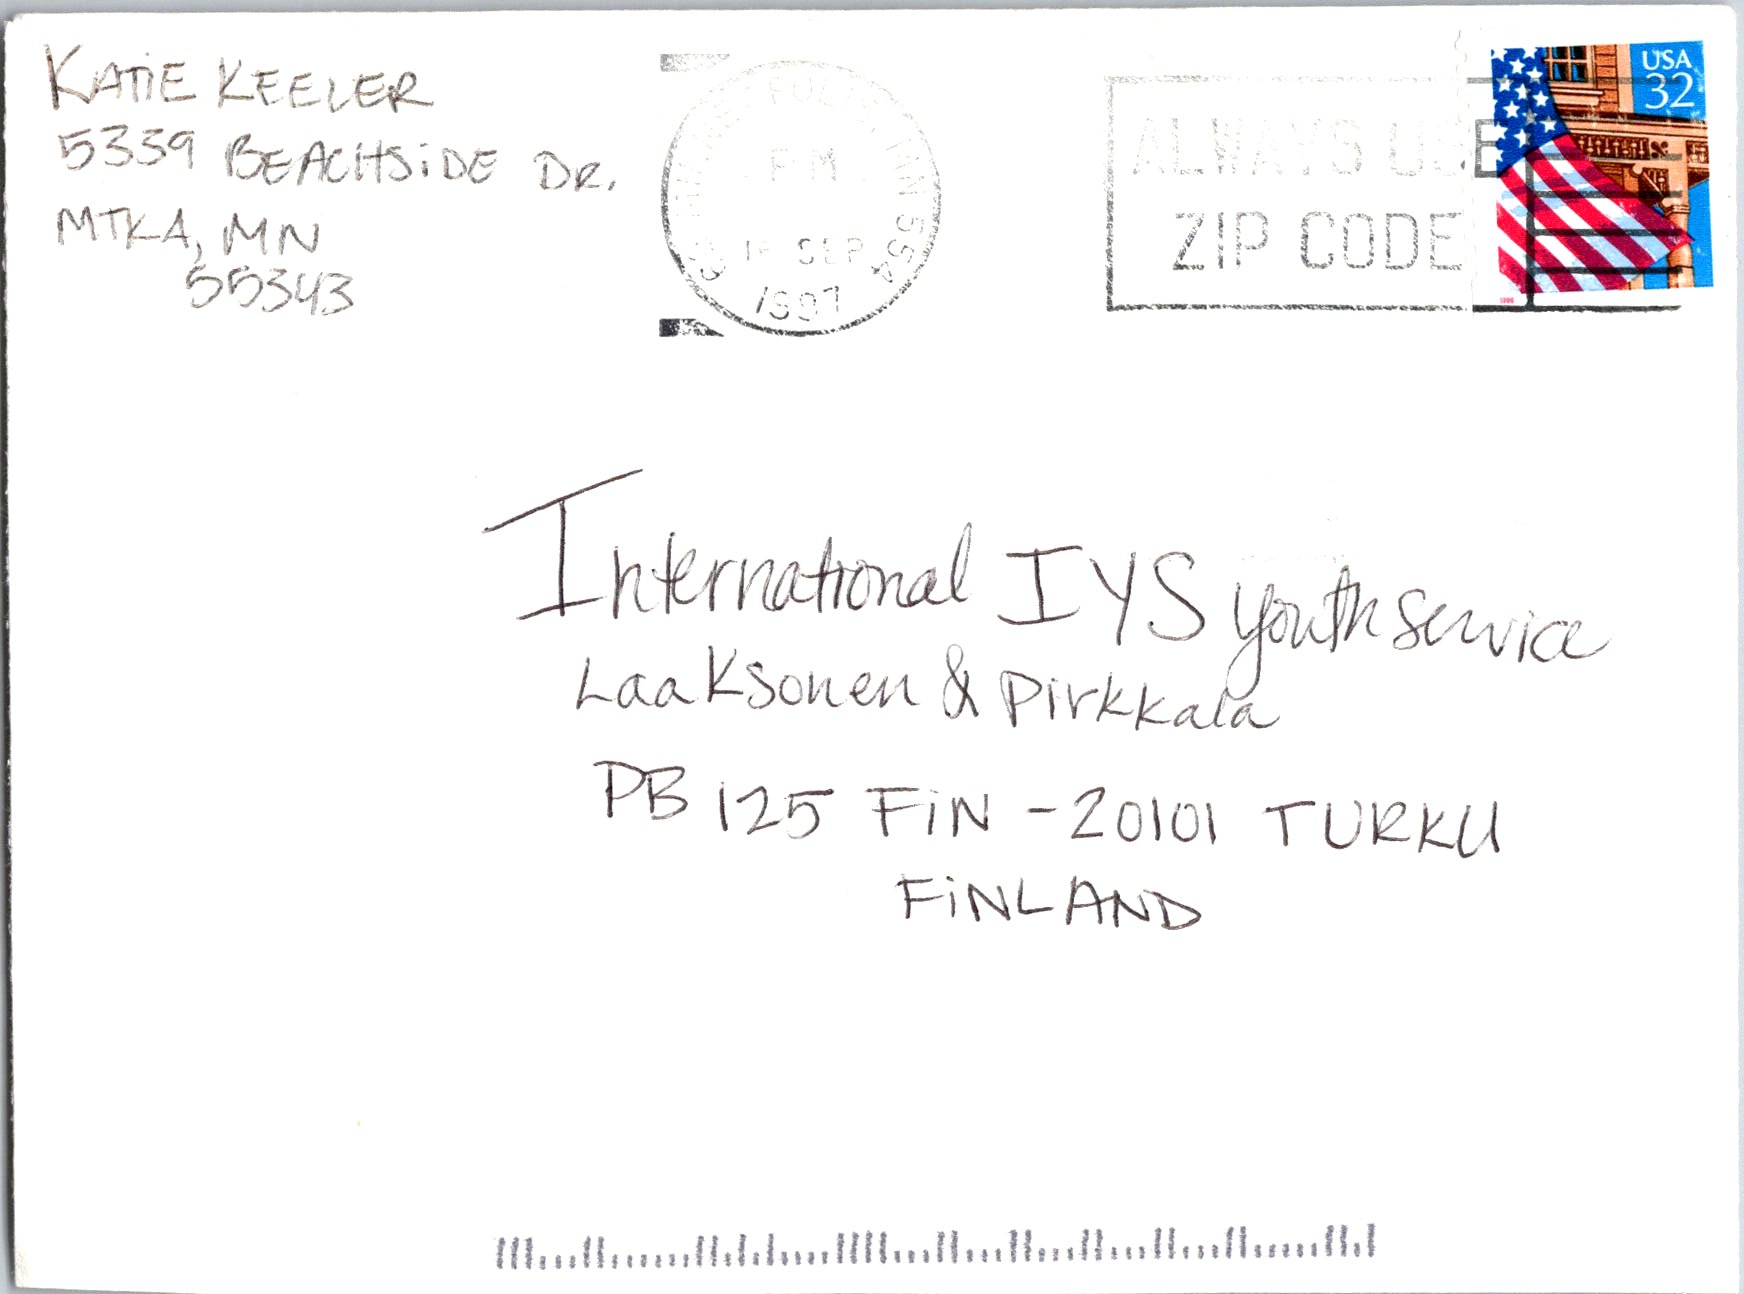 KATIE KEELER
5339 BEACHSIDE DR.
MTKA, MN
55343
PM
SEP
1997
ALWAYS USE
ZIP CODE
USA
32
1996
International IYS Youth Service
Laaksonen & Pirkkala
PB 125 FIN - 20101 TURKU
FINLAND